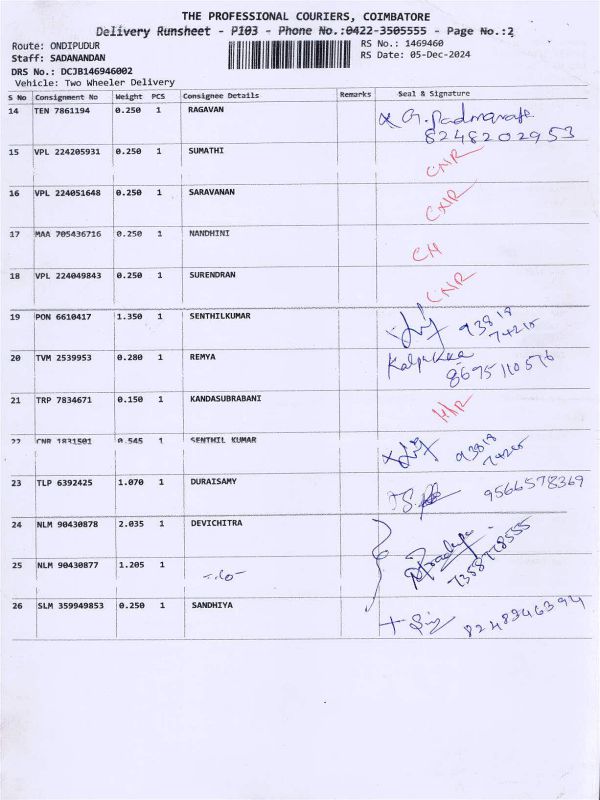 THE PROFESSIONAL COURIERS, COIMBATORE
Delivery Runsheet - P103 - Phone No.:0422-3505555 - Page No.:2
Route: ONDIPUDUR
RS No.: 1469460
Staff: SADANANDAN
RS Date: 05-Dec-2024
DRS No.: DCJB146946002
Vehicle: Two Wheeler Delivery
S No Consignment No Weight PCS Consignee Details Remarks Seal & Signature
14 TEN 7861194 0.250 1 RAGAVAN x G. Padmavathi
8248202953
15 VPL 224205931 0.250 1 SUMATHI CNR
16 VPL 224051648 0.250 1 SARAVANAN CNR
17 MAA 705436716 0.250 1 NANDHINI CH
18 VPL 224049843 0.250 1 SURENDRAN CNR
19 PON 6610417 1.350 1 SENTHILKUMAR 93819
74215
20 TVM 2539953 0.280 1 REMYA
8695110576
21 TRP 7834671 0.150 1 KANDASUBRABANI
22 CNR 1831501 0.545 1 SENTHIL KUMAR 93819
74215
23 TLP 6392425 1.070 1 DURAISAMY 9566578369
24 NLM 90430878 2.035 1 DEVICHITRA
7358778555
25 NLM 90430877 1.205 1
26 SLM 359949853 0.250 1 SANDHIYA 8248946394